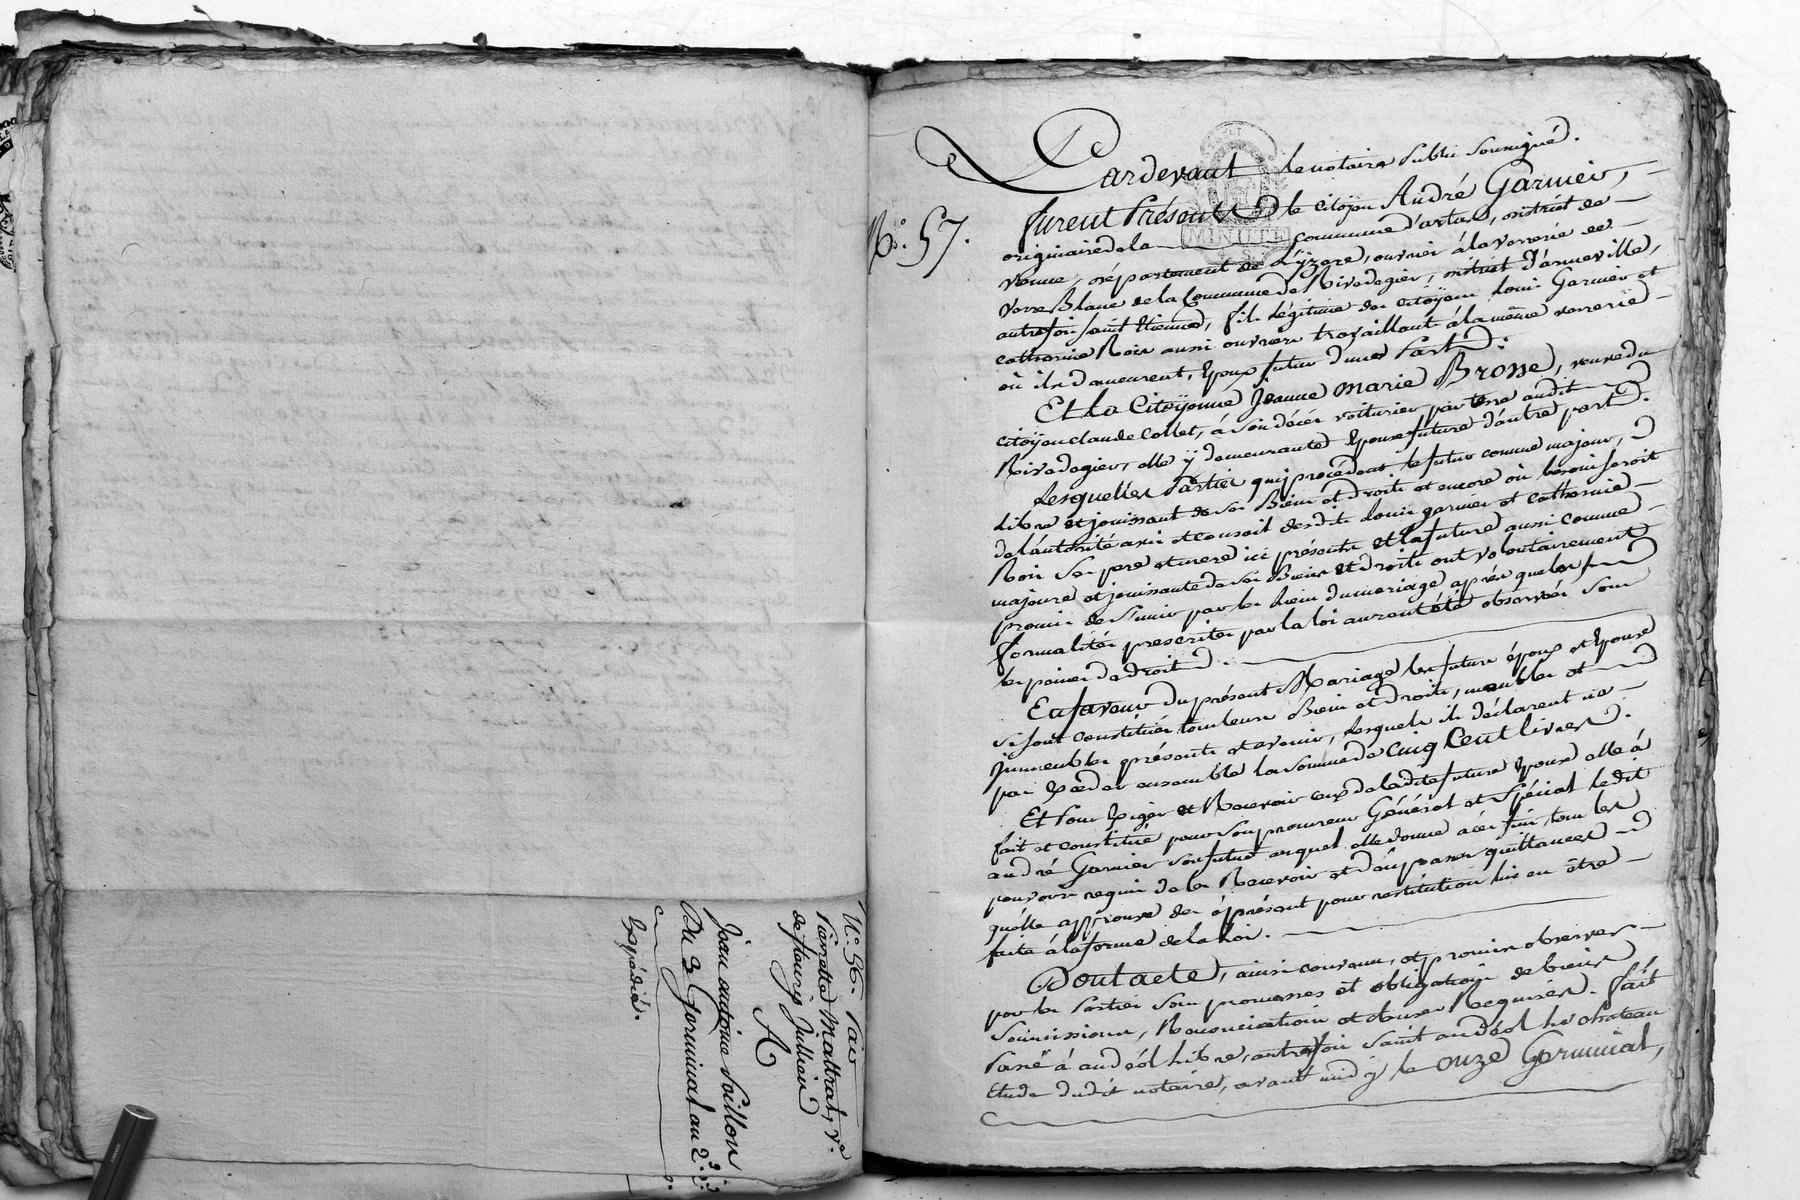 N.° 56. Paix
Pierrette Mattrat, v.e
de fleury Jullien
A
Jean antoine Paillon
Du 3 Germinal an 2.e
Expédié.
N.° 57.
Pardevant le notaire Public Soussigné.
furent Présents le citoÿen André Garnier,
originaire de la commune d'artas, district de
vienne, département de L'yzere, ouvrier à la verrerie de
verre Blanc de la Commune de Rivedegier, district d'armeville,
autrefois saint Etienne, fils légitime des citoÿens Louis Garnier et
catherine Roin aussi ouvriers travaillants à la même verrerie
où ils demeurent, Epoux futur d'une Part.
Et La Citoÿenne Jeanne Marie Brosse, veuve du
citoÿen claude Collet, à son décès voiturier par terre audit
Rivedegier, elle ÿ demeurante Epouse future d'autre part.
Lesquelles Parties qui procèdent le futur comme majeur,
libre et jouissant de ses Biens et droits et encore où besoin seroit
de l'autorité avis et conseil desdits Louis garnier et catherine
Roin ses pere et mere ici présents et la future aussi comme
majeure et jouissante de ses Biens et droits ont volontairement
promis de s'unir par les liens du mariage après que les
formalités prescrites par la loi auront été observées sous
les peines de droit.
En faveur du présent Mariage les future époux et Epouse
se sont constitués tous leurs Biens et droits, meubles et
immeubles présents et avenir, lesquels ils déclarent ne
pas Excéder ensemble la somme de cinq Cent livres.
Et Pour Exiger et Recevoir ceux de ladite future Epouse elle à
fait et constitué pour son procureur Général et Spécial ledit
andré Garnier son futur auquel elle donne à ces fins tous les
pouvoirs requis de les Recevoir et d'en passer quittances
qu'elle approuve dès àprésent pour restitution lui en être
faite à la forme de la Loi.
Dont acte, ainsi convenu, et promis observer
par les Parties sous promesses et obligation de biens
Soumissions, Renonciations et clauses Requises. fait
Passé à andéol libre, autrefois saint andéol le chateau
Etude dudit notaire, avant midy le onze Germinal,